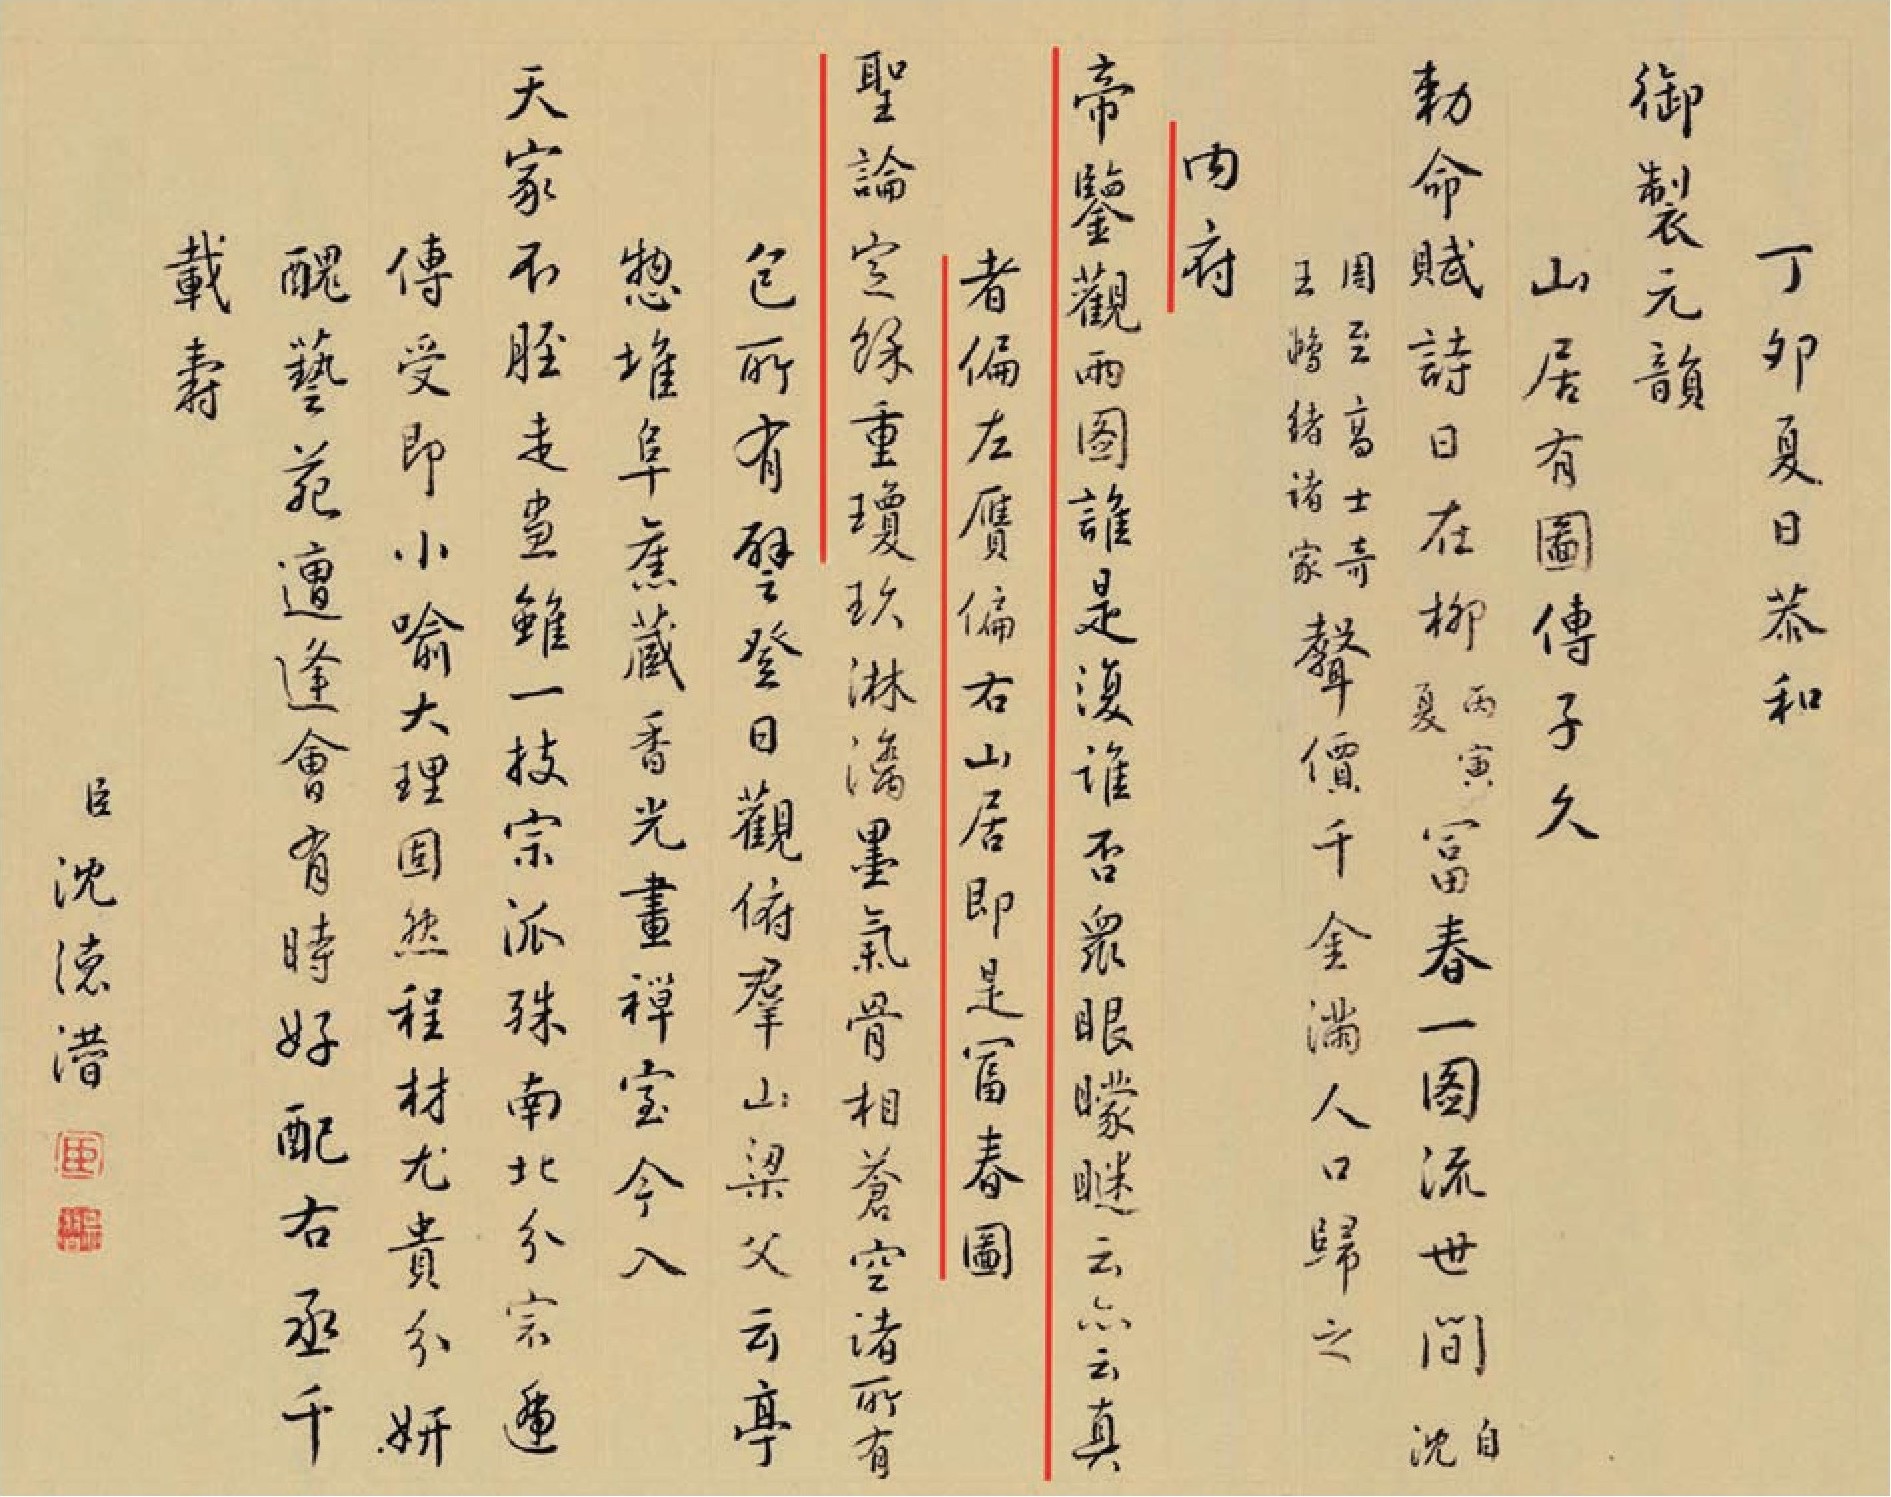 丁卯夏日恭和
御製元韻
山居有圖傳子久
勅命賦詩日在柳丙寅夏富春一图流世間自沈
周至高士奇王鴻緒諸家聲價千金滿人口歸之
内府
帝鑒觀兩图誰是復誰否衆眼曚瞇云亦云真
者偏左贋偏右山居即是富春圖
聖論定餘重瓊玖淋漓墨氣骨相蒼空諸所有
包所有譬登日觀俯羣山梁父云亭
惣堆阜舊藏香光畫禅室今入
天家不胫走畫雖一技宗派殊南北分宗遞
傳受即小喻大理固然程材尤貴分妍
醜藝苑遭逢會有時好配右丞千
載壽
臣沈德潛